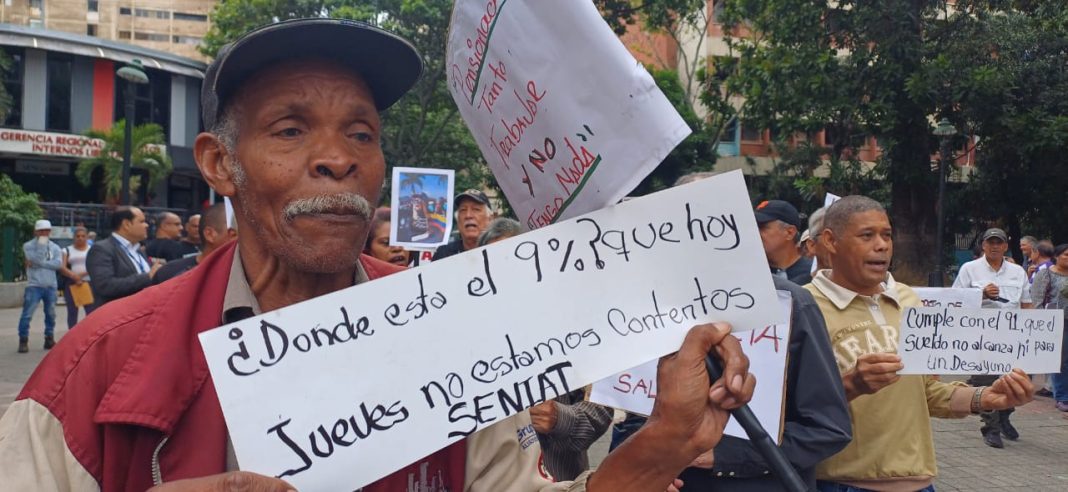 GERENCIA REGIONAL
INTERNOS
Pensionado
Tanto
Trabajar
y no
Tengo Nada"
¿Donde esta el 9%? que hoy
Jueves no estamos Contentos
SENIAT
SAL
Cumple con el 91, que el
Sueldo no alcanza ni para
un Desayuno